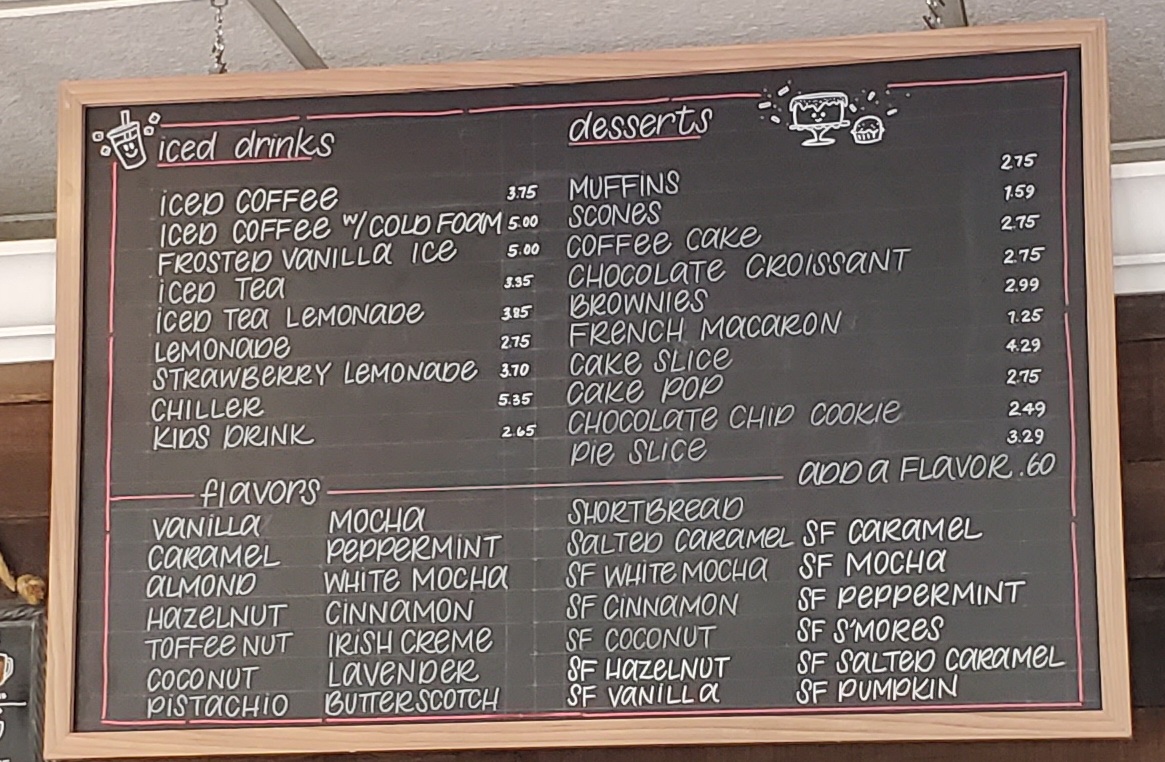 iced drinks
ICED COFFEE 3.75
ICED COFFEE W/ COLD FOAM 5.00
FROSTED VANILLA ICE 5.00
ICED TEA 3.35
ICED TEA LEMONADE 3.85
LEMONADE 2.75
STRAWBERRY LEMONADE 3.70
CHILLER 5.35
KIDS DRINK 2.65
desserts
MUFFINS 2.75
SCONES 1.59
COFFEE CAKE 2.75
CHOCOLATE CROISSANT 2.75
BROWNIES 2.99
FRENCH MACARON 1.25
CAKE SLICE 4.29
CAKE POP 2.75
CHOCOLATE CHIP COOKIE 2.49
PIE SLICE 3.29
flavors
ADD A FLAVOR .60
VANILLA
CARAMEL
ALMOND
HAZELNUT
TOFFEE NUT
COCONUT
PISTACHIO
MOCHA
PEPPERMINT
WHITE MOCHA
CINNAMON
IRISH CREME
LAVENDER
BUTTERSCOTCH
SHORTBREAD
SALTED CARAMEL
SF WHITE MOCHA
SF CINNAMON
SF COCONUT
SF HAZELNUT
SF VANILLA
SF CARAMEL
SF MOCHA
SF PEPPERMINT
SF S'MORES
SF SALTED CARAMEL
SF PUMPKIN